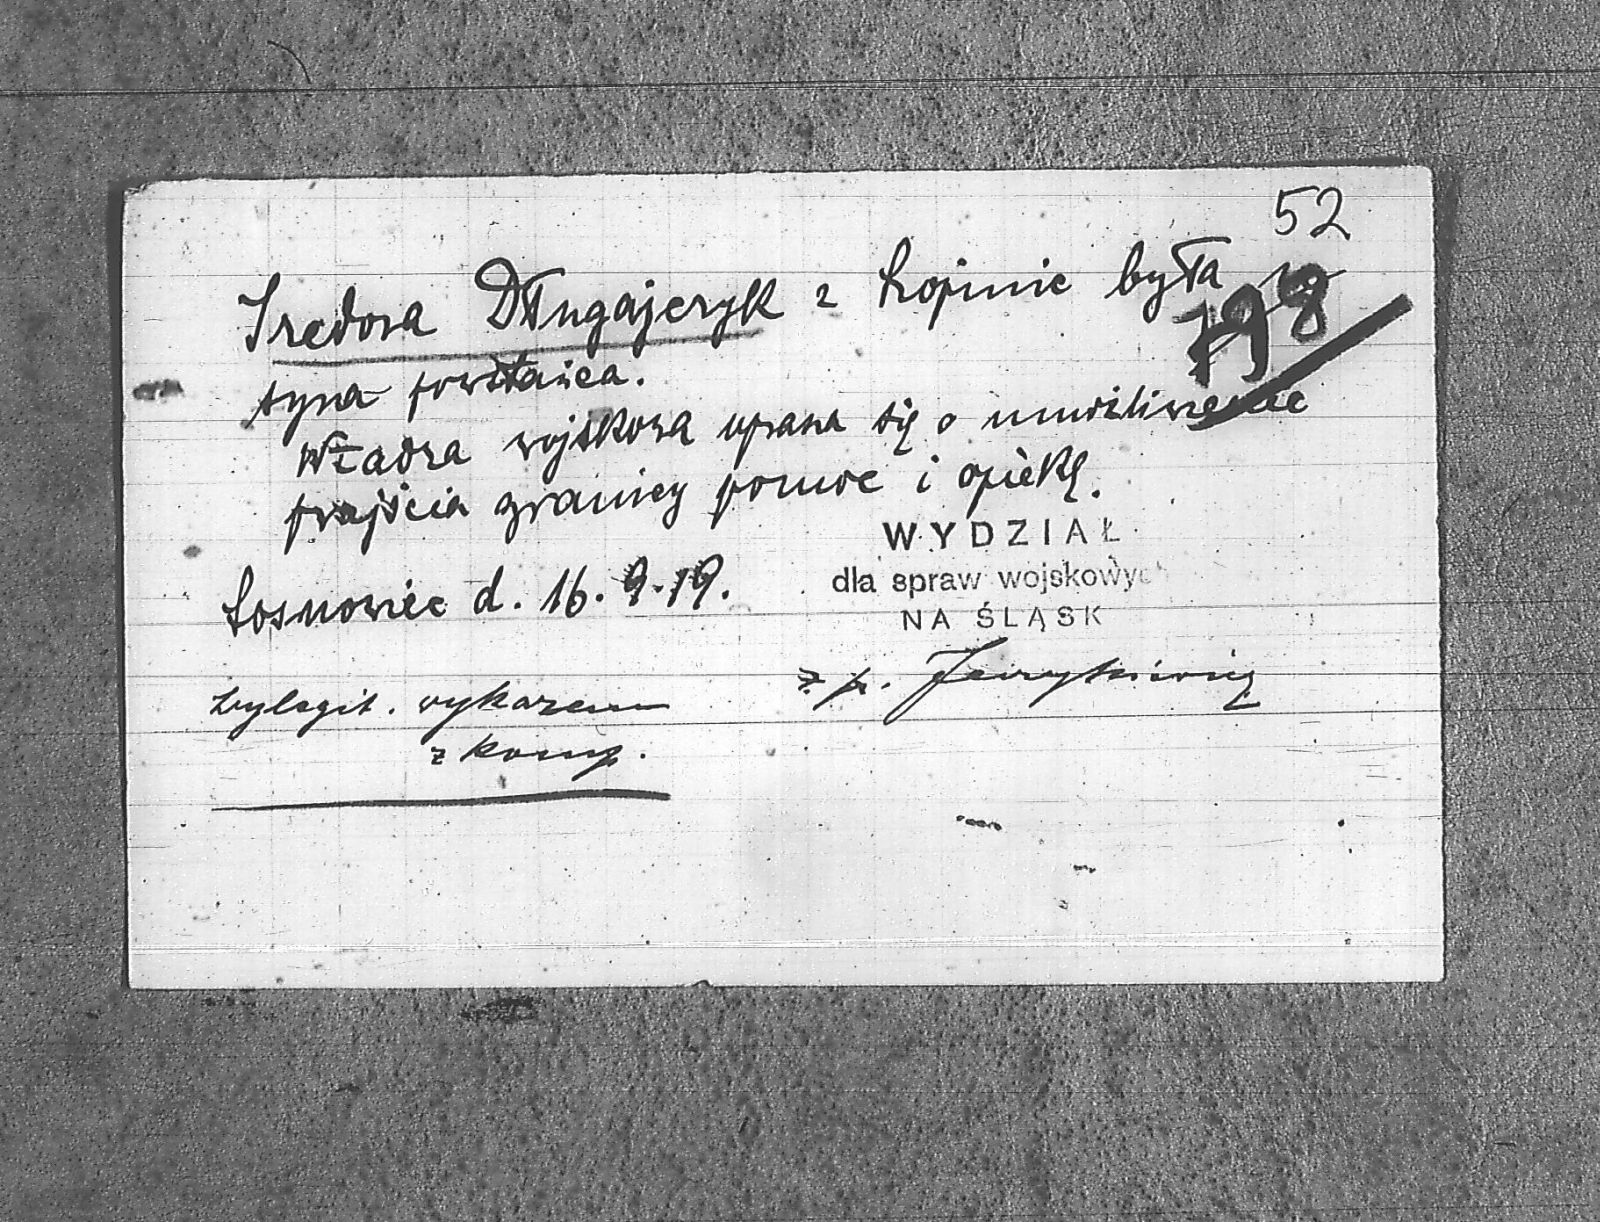 52
Izedora Długajczyk z Łopinie była u
198
syna powstańca.
Władza wojskowa uprasza się o umożliwienie
przejścia granicy pomoc i opiekę.
Sosnowiec d. 16. 9. 19.
WYDZIAŁ
dla spraw wojskowyc
NA ŚLĄSK
z p.
wylegit. wykazem
z komp.